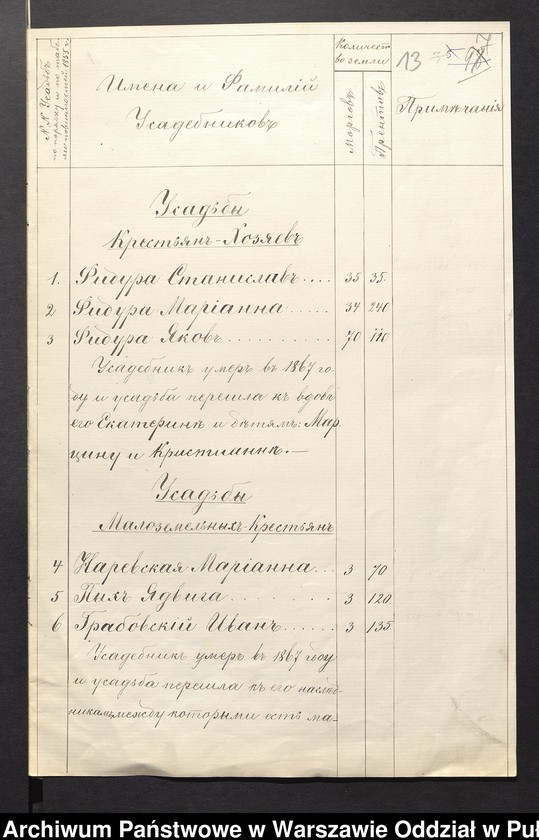 №№ Усадьбъ
по порядку и по таб.
Имена и Фамиліи
Усадебниковъ
Количест
во земли
Морговъ
Прентовъ
13
Примѣчанія
Усадьбы
Крестьянъ-Хозяевъ
1. Фидура Станиславъ.... 35 35.
2 Фидура Маріанна..... 34 240
3 Фидура Яковъ.......... 70 110
Усадебникъ умеръ въ 1867 го-
ду и усадьба перешла къ вдовѣ
его Екатеринѣ и дѣтямъ: Мар
цину и Кристіаннѣ.—
Усадьбы
Малоземельныхъ-Крестьянъ
4 Наревская Маріанна... 3 70
5 Пихъ Ядвига........ 3 120.
6 Грабовскій Иванъ...... 3 135
Усадебникъ умеръ въ 1867 году
и усадьба перешла къ его наслѣд-
никамъ, между которыми есть ма-
Archiwum Państwowe w Warszawie Oddział w Puł